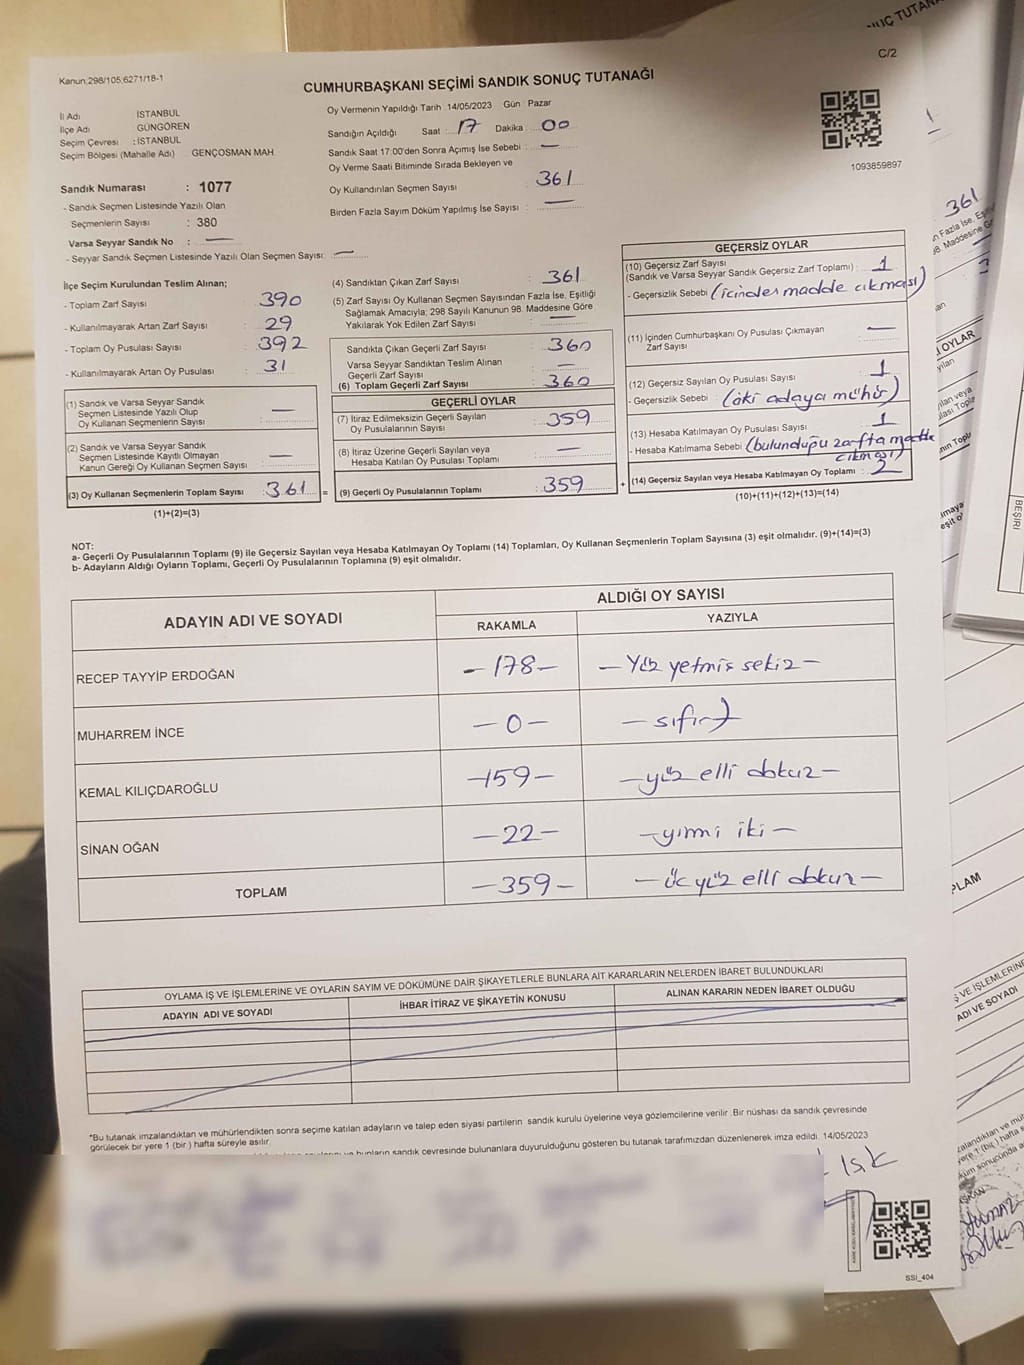 Kanun:298/105;6271/18-1
C/2
CUMHURBAŞKANI SEÇİMİ SANDIK SONUÇ TUTANAĞI
İl Adı İSTANBUL
İlçe Adı GÜNGÖREN
Seçim Çevresi : İSTANBUL
Seçim Bölgesi (Mahalle Adı) GENÇOSMAN MAH.
Sandık Numarası : 1077
- Sandık Seçmen Listesinde Yazılı Olan
Seçmenlerin Sayısı : 380
Varsa Seyyar Sandık No : —
- Seyyar Sandık Seçmen Listesinde Yazılı Olan Seçmen Sayısı: —
Oy Vermenin Yapıldığı Tarih : 14/05/2023 Gün : Pazar
Sandığın Açıldığı Saat : 17 Dakika : 00
Sandık Saat 17:00'den Sonra Açımış İse Sebebi : —
Oy Verme Saati Bitiminde Sırada Bekleyen ve
Oy Kullandırılan Seçmen Sayısı : 361
Birden Fazla Sayım Döküm Yapılmış İse Sayısı : —
1093859897
İlçe Seçim Kurulundan Teslim Alınan;
- Toplam Zarf Sayısı : 390
- Kullanılmayarak Artan Zarf Sayısı : 29
- Toplam Oy Pusulası Sayısı : 392
- Kullanılmayarak Artan Oy Pusulası : 31
(1) Sandık ve Varsa Seyyar Sandık
Seçmen Listesinde Yazılı Olup
Oy Kullanan Seçmenlerin Sayısı : —
(2) Sandık ve Varsa Seyyar Sandık
Seçmen Listesinde Kayıtlı Olmayan
Kanun Gereği Oy Kullanan Seçmen Sayısı : —
(3) Oy Kullanan Seçmenlerin Toplam Sayısı : 361 =
(1)+(2)=(3)
(4) Sandıktan Çıkan Zarf Sayısı : 361
(5) Zarf Sayısı Oy Kullanan Seçmen Sayısından Fazla İse, Eşitliği
Sağlamak Amacıyla; 298 Sayılı Kanunun 98. Maddesine Göre
Yakılarak Yok Edilen Zarf Sayısı : —
Sandıkta Çıkan Geçerli Zarf Sayısı : 360
Varsa Seyyar Sandıktan Teslim Alınan
Geçerli Zarf Sayısı : —
(6) Toplam Geçerli Zarf Sayısı : 360
GEÇERLİ OYLAR
(7) İtiraz Edilmeksizin Geçerli Sayılan
Oy Pusulalarının Sayısı : 359
(8) İtiraz Üzerine Geçerli Sayılan veya
Hesaba Katılan Oy Pusulası Toplamı : —
(9) Geçerli Oy Pusulalarının Toplamı : 359 +
GEÇERSİZ OYLAR
(10) Geçersiz Zarf Sayısı
(Sandık ve Varsa Seyyar Sandık Geçersiz Zarf Toplamı) : 1
- Geçersizlik Sebebi : (içinden madde çıkması)
(11) İçinden Cumhurbaşkanı Oy Pusulası Çıkmayan
Zarf Sayısı : —
(12) Geçersiz Sayılan Oy Pusulası Sayısı : 1
- Geçersizlik Sebebi : (iki adaya mühür)
(13) Hesaba Katılmayan Oy Pusulası Sayısı : 1
- Hesaba Katılmama Sebebi : (bulunduğu zarfta madde
çıkması)
(14) Geçersiz Sayılan veya Hesaba Katılmayan Oy Toplamı : 2
(10)+(11)+(12)+(13)=(14)
NOT:
a- Geçerli Oy Pusulalarının Toplamı (9) ile Geçersiz Sayılan veya Hesaba Katılmayan Oy Toplamı (14) Toplamları, Oy Kullanan Seçmenlerin Toplam Sayısına (3) eşit olmalıdır. (9)+(14)=(3)
b- Adayların Aldığı Oyların Toplamı, Geçerli Oy Pusulalarının Toplamına (9) eşit olmalıdır.
ADAYIN ADI VE SOYADI
ALDIĞI OY SAYISI
RAKAMLA YAZIYLA
RECEP TAYYİP ERDOĞAN -178- - Yüz yetmiş sekiz -
MUHARREM İNCE -0- - sıfır -
KEMAL KILIÇDAROĞLU -159- - yüz elli dokuz -
SİNAN OĞAN -22- - yirmi iki -
TOPLAM -359- - üç yüz elli dokuz -
OYLAMA İŞ VE İŞLEMLERİNE VE OYLARIN SAYIM VE DÖKÜMÜNE DAİR ŞİKAYETLERLE BUNLARA AİT KARARLARIN NELERDEN İBARET BULUNDUKLARI
ADAYIN ADI VE SOYADI İHBAR İTİRAZ VE ŞİKAYETİN KONUSU ALINAN KARARIN NEDEN İBARET OLDUĞU
*Bu tutanak imzalandıktan ve mühürlendikten sonra seçime katılan adayların ve talep eden siyasi partilerin sandık kurulu üyelerine veya gözlemcilerine verilir. Bir nüshası da sandık çevresinde
görülecek bir yere 1 (bir) hafta süreyle asılır.
bunların sandık çevresinde bulunanlara duyurulduğunu gösteren bu tutanak tarafımızdan düzenlenerek imza edildi. 14/05/2023
SSI_404
361
OYLAR
BEŞİRİ
PLAM
ADI VE SOYADI